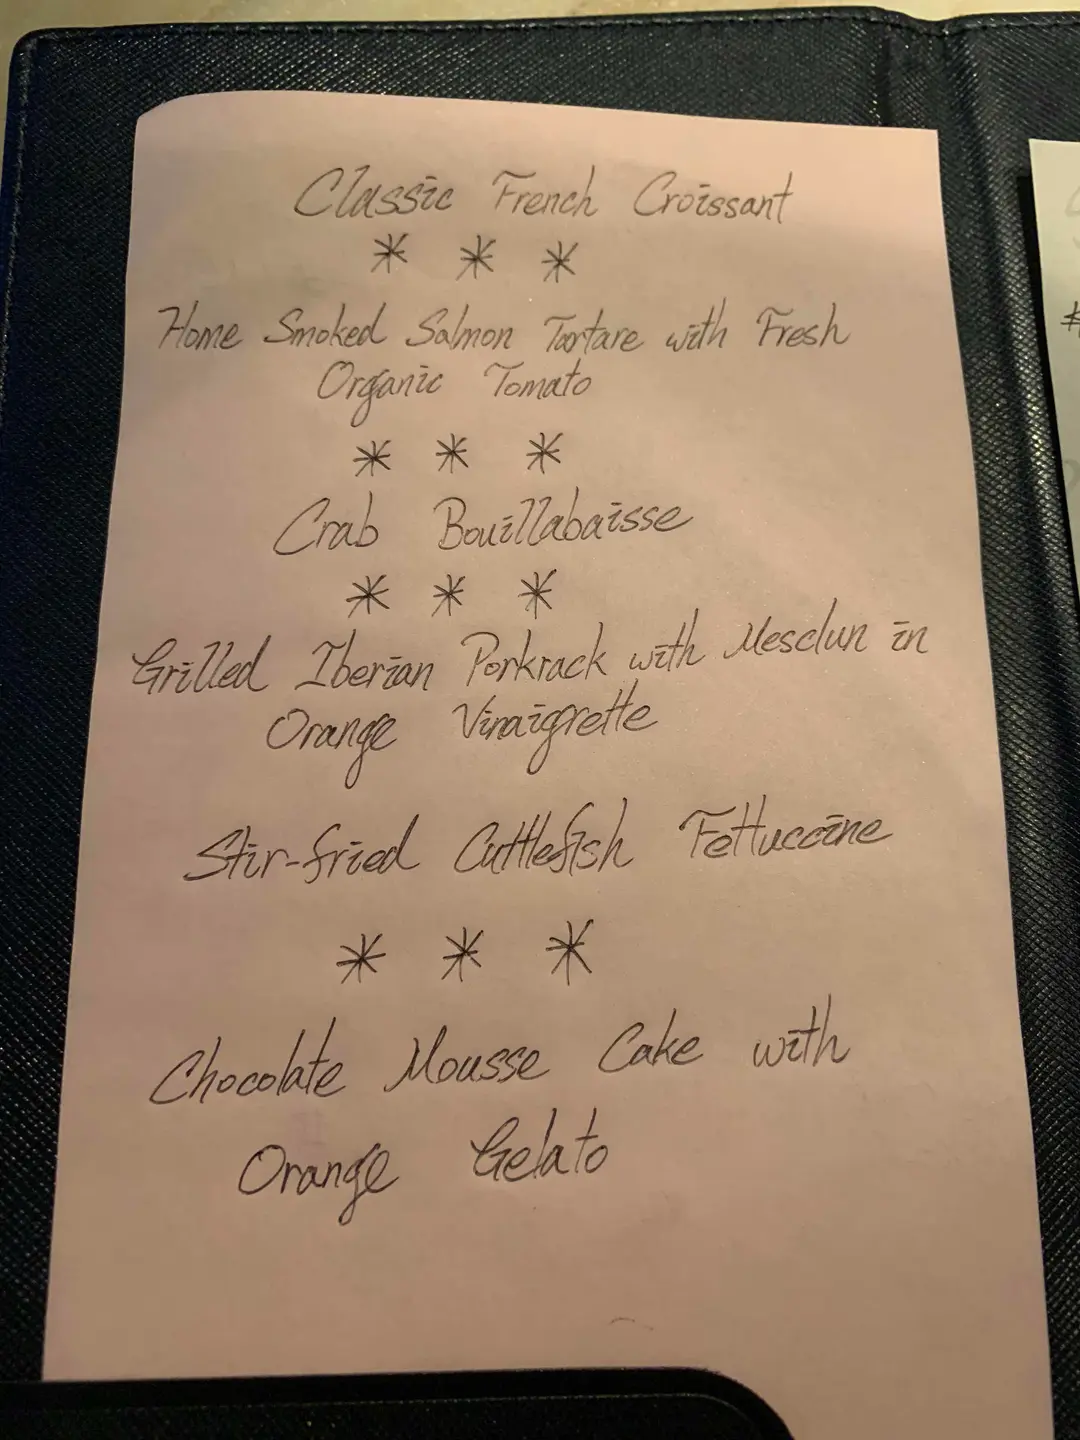 Classic French Croissant
* * *
Home Smoked Salmon Tartare with Fresh
Organic Tomato
* * *
Crab Bouillabaisse
* * *
Grilled Iberian Porkrack with Mesclun in
Orange Vinaigrette
Stir-fried Cuttlefish Fettuccine
* * *
Chocolate Mousse Cake with
Orange Gelato